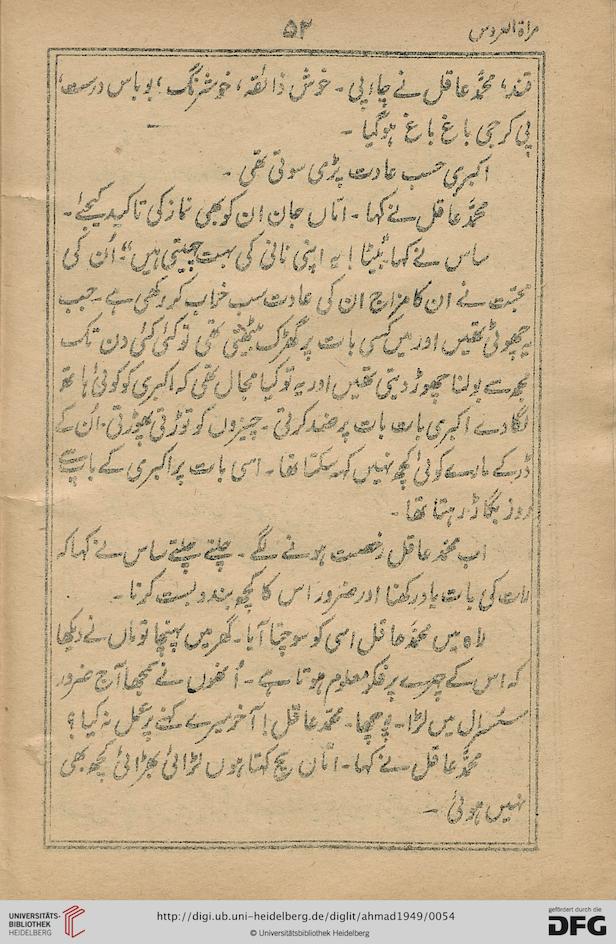 مراۃ العروس
۵۲
قند، محمّد عاقل نے چاء پی ۔ خوش ذائقہ، خوش رنگ، بو باس درست،
پی کر جی باغ باغ ہو گیا ۔
اکبری حسب عادت پڑی سوتی تھی ۔
محمّد عاقل نے کہا ۔ امّاں جان ان کو بھی نماز کی تاکید کیجئے ۔
ساس نے کہا "بیٹا ! یہ اپنی نانی کی بہت چہیتی ہیں" اُن کی
محبّت نے ان کا مزاج ان کی عادت سب خراب کر رکھی ہے ۔ جب
یہ چھوٹی تھیں اور میں کسی بات پر گھڑک بیٹھتی تھی تو کئی کئی دن تک
مجھ سے بولنا چھوڑ دیتی تھیں اور یہ تو کیا مجال تھی کہ اکبری کو کوئی ہاتھ
لگا دے اکبری بات بات پر ضد کرتی ۔ چیزوں کو توڑتی پھوڑتی ۔ اُن کے
ڈر کے مارے کوئی کچھ نہیں کہہ سکتا تھا ۔ اسی بات پر اکبری کے باپ سے
روز بگاڑ رہتا تھا ۔
اب محمّد عاقل رخصت ہونے لگے ۔ چلتے چلتے ساس نے کہا کہ
رات کی بات یاد رکھنا اور ضرور اس کا کچھ بندوبست کرنا ۔
راہ میں محمّد عاقل اسی کو سوچتا آیا ۔ گھر میں پہنچا تو ماں نے دیکھا
کہ اس کے چہرے پر فکر معلوم ہوتا ہے ۔ اُنھوں نے سمجھا آج ضرور
سسرال میں لڑا ۔ پوچھا ۔ محمّد عاقل ! آخر میرے کہنے پر عمل نہ کیا ؟
محمّد عاقل نے کہا ۔ امّاں سچ کہتا ہوں لڑائی بھڑائی کچھ بھی
نہیں ہوئی ۔
UNIVERSITÄTS-
BIBLIOTHEK
HEIDELBERG
http://digi.ub.uni-heidelberg.de/diglit/ahmad1949/0054
© Universitätsbibliothek Heidelberg
gefördert durch die
DFG